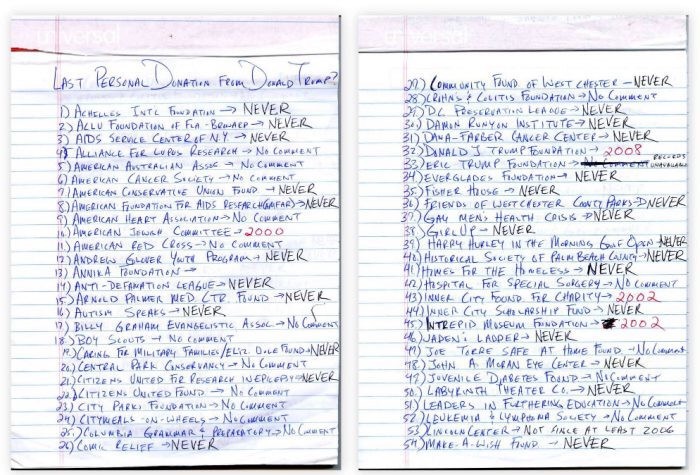 LAST PERSONAL DONATION FROM DONALD TRUMP?
1) ACHILLES INTL FOUNDATION → NEVER
2) ACLU FOUNDATION OF FLA-BROWARD → NEVER
3) AIDS SERVICE CENTER OF NY → NEVER
4) ALLIANCE FOR LUPUS RESEARCH → NO COMMENT
5) AMERICAN AUSTRALIAN ASSOC → NO COMMENT
6) AMERICAN CANCER SOCIETY → NO COMMENT
7) AMERICAN CONSERVATIVE UNION FOUND → NEVER
8) AMERICAN FOUNDATION FOR AIDS RESEARCH (AMFAR) → NEVER
9) AMERICAN HEART ASSOCIATION → NO COMMENT
10) AMERICAN JEWISH COMMITTEE → 2000
11) AMERICAN RED CROSS → NO COMMENT
12) ANDREW GLOVER YOUTH PROGRAM → NEVER
13) ANNIKA FOUNDATION →
14) ANTI-DEFAMATION LEAGUE → NEVER
15) ARNOLD PALMER MED CTR. FOUND → NEVER
16) AUTISM SPEAKS → NEVER
17) BILLY GRAHAM EVANGELISTIC ASSOC → NO COMMENT
18) BOY SCOUTS → NO COMMENT
19) CARING FOR MILITARY FAMILIES/ELIZ. DOLE FOUND → NEVER
20) CENTRAL PARK CONSERVANCY → NO COMMENT
21) CITIZENS UNITED FOR RESEARCH IN EPILEPSY → NEVER
22) CITIZENS UNITED FOUND → NO COMMENT
23) CITY PARKS FOUNDATION → NO COMMENT
24) CITYMEALS-ON-WHEELS → NO COMMENT
25) COLUMBIA GRAMMAR & PREPARATORY → NO COMMENT
26) COMIC RELIEF → NEVER
27) COMMUNITY FOUND OF WESTCHESTER → NEVER
28) CROHNS & COLITIS FOUNDATION → NO COMMENT
29) DC PRESERVATION LEAGUE → NEVER
30) DAMON RUNYON INSTITUTE → NEVER
31) DANA-FARBER CANCER CENTER → NEVER
32) DONALD J TRUMP FOUNDATION → 2008
33) ERIC TRUMP FOUNDATION → NO COMMENT RECORDS UNAVAILABLE
34) EVERGLADES FOUNDATION → NEVER
35) FISHER HOUSE → NEVER
36) FRIENDS OF WESTCHESTER COUNTY PARKS → NEVER
37) GAY MEN'S HEALTH CRISIS → NEVER
38) GIRL UP → NEVER
39) HARRY HURLEY IN THE MORNING GOLF OPEN → NEVER
40) HISTORICAL SOCIETY OF PALM BEACH COUNTY → NEVER
41) HOMES FOR THE HOMELESS → NEVER
42) HOSPITAL FOR SPECIAL SURGERY → NO COMMENT
43) INNER CITY FOUND FOR CHARITY → 2002
44) INNER CITY SCHOLARSHIP FUND → NEVER
45) INTREPID MUSEUM FOUNDATION → 2002
46) JADEN'S LADDER → NEVER
47) JOE TORRE SAFE AT HOME FOUND → NO COMMENT
48) JOHN A. MORAN EYE CENTER → NEVER
49) JUVENILE DIABETES FOUND → NO COMMENT
50) LABYRINTH THEATER CO. → NEVER
51) LEADERS IN FURTHERING EDUCATION → NO COMMENT
52) LEUKEMIA & LYMPHOMA SOCIETY → NO COMMENT
53) LINCOLN CENTER → NOT SINCE AT LEAST 2006
54) MAKE-A-WISH FOUND → NEVER